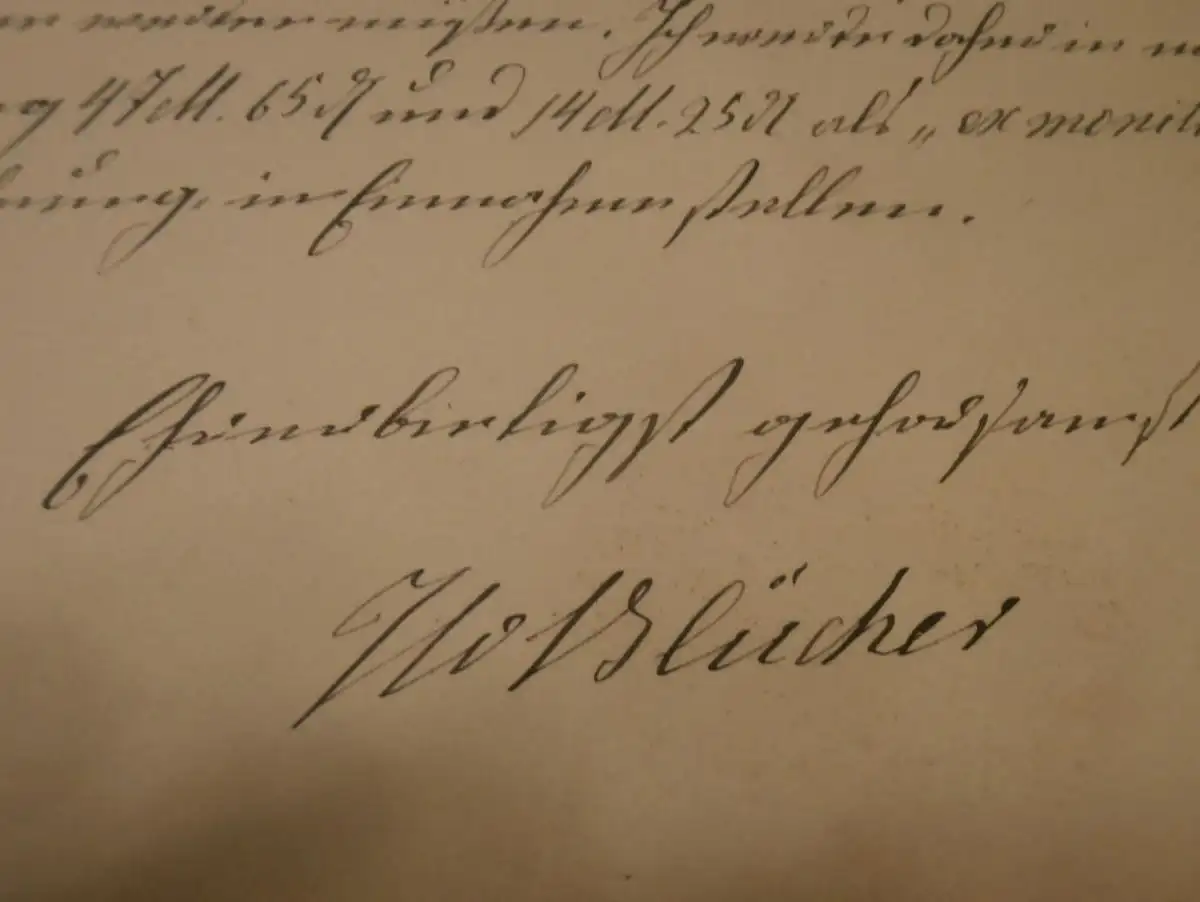 werden müßen. Ich werde daher in
47 M. 65 ₰ und 14 M. 25 ₰ als „ex
in Einnahme stellen.
Ehrerbietigst gehorsamst
Blücher